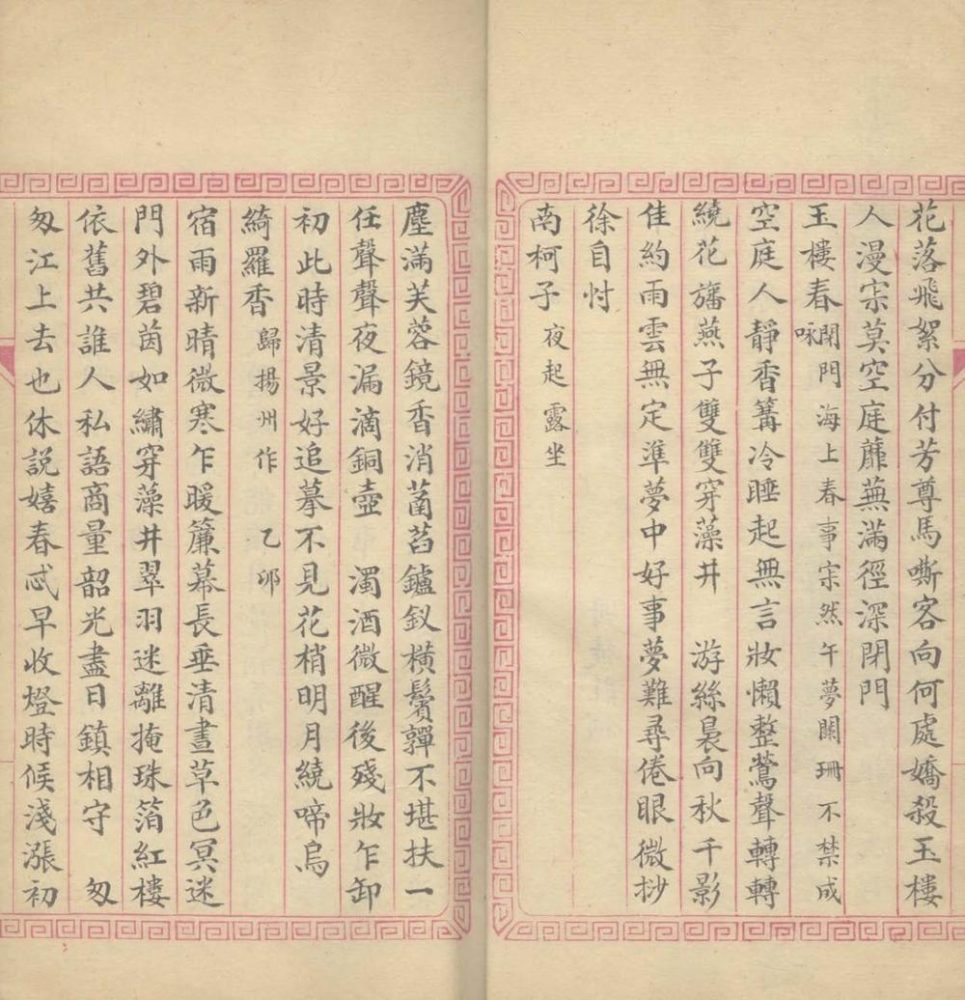 花落飛絮分付芳尊馬嘶客向何處嬌殺玉樓
人漫宗莫空庭蘼蕪滿徑深閉門
玉樓春 閉門海上春事宗然午夢闌珊不禁成
咏
空庭人靜香篝冷睡起無言妝懶整鶯聲轉轉
繞花旛燕子雙雙穿藻井 游絲裊向秋千影
佳約雨雲無定準夢中好事夢難尋倦眼微抄
徐自忖
南柯子 夜起露坐
塵滿芙蓉鏡香消菡萏鑪釵橫鬢嚲不堪扶一
任聲聲夜漏滴銅壺 濁酒微醒後殘妝乍卸
初此時清景好追摹不見花梢明月繞啼烏
綺羅香 歸揚州作 乙卯
宿雨新晴微寒乍暖簾幕長垂清晝草色冥迷
門外碧茵如繡穿藻井翠羽迷離掩珠箔紅樓
依舊共誰人私語商量韶光盡日鎮相守 匆
匆江上去也休說嬉春忒早收燈時候淺漲初